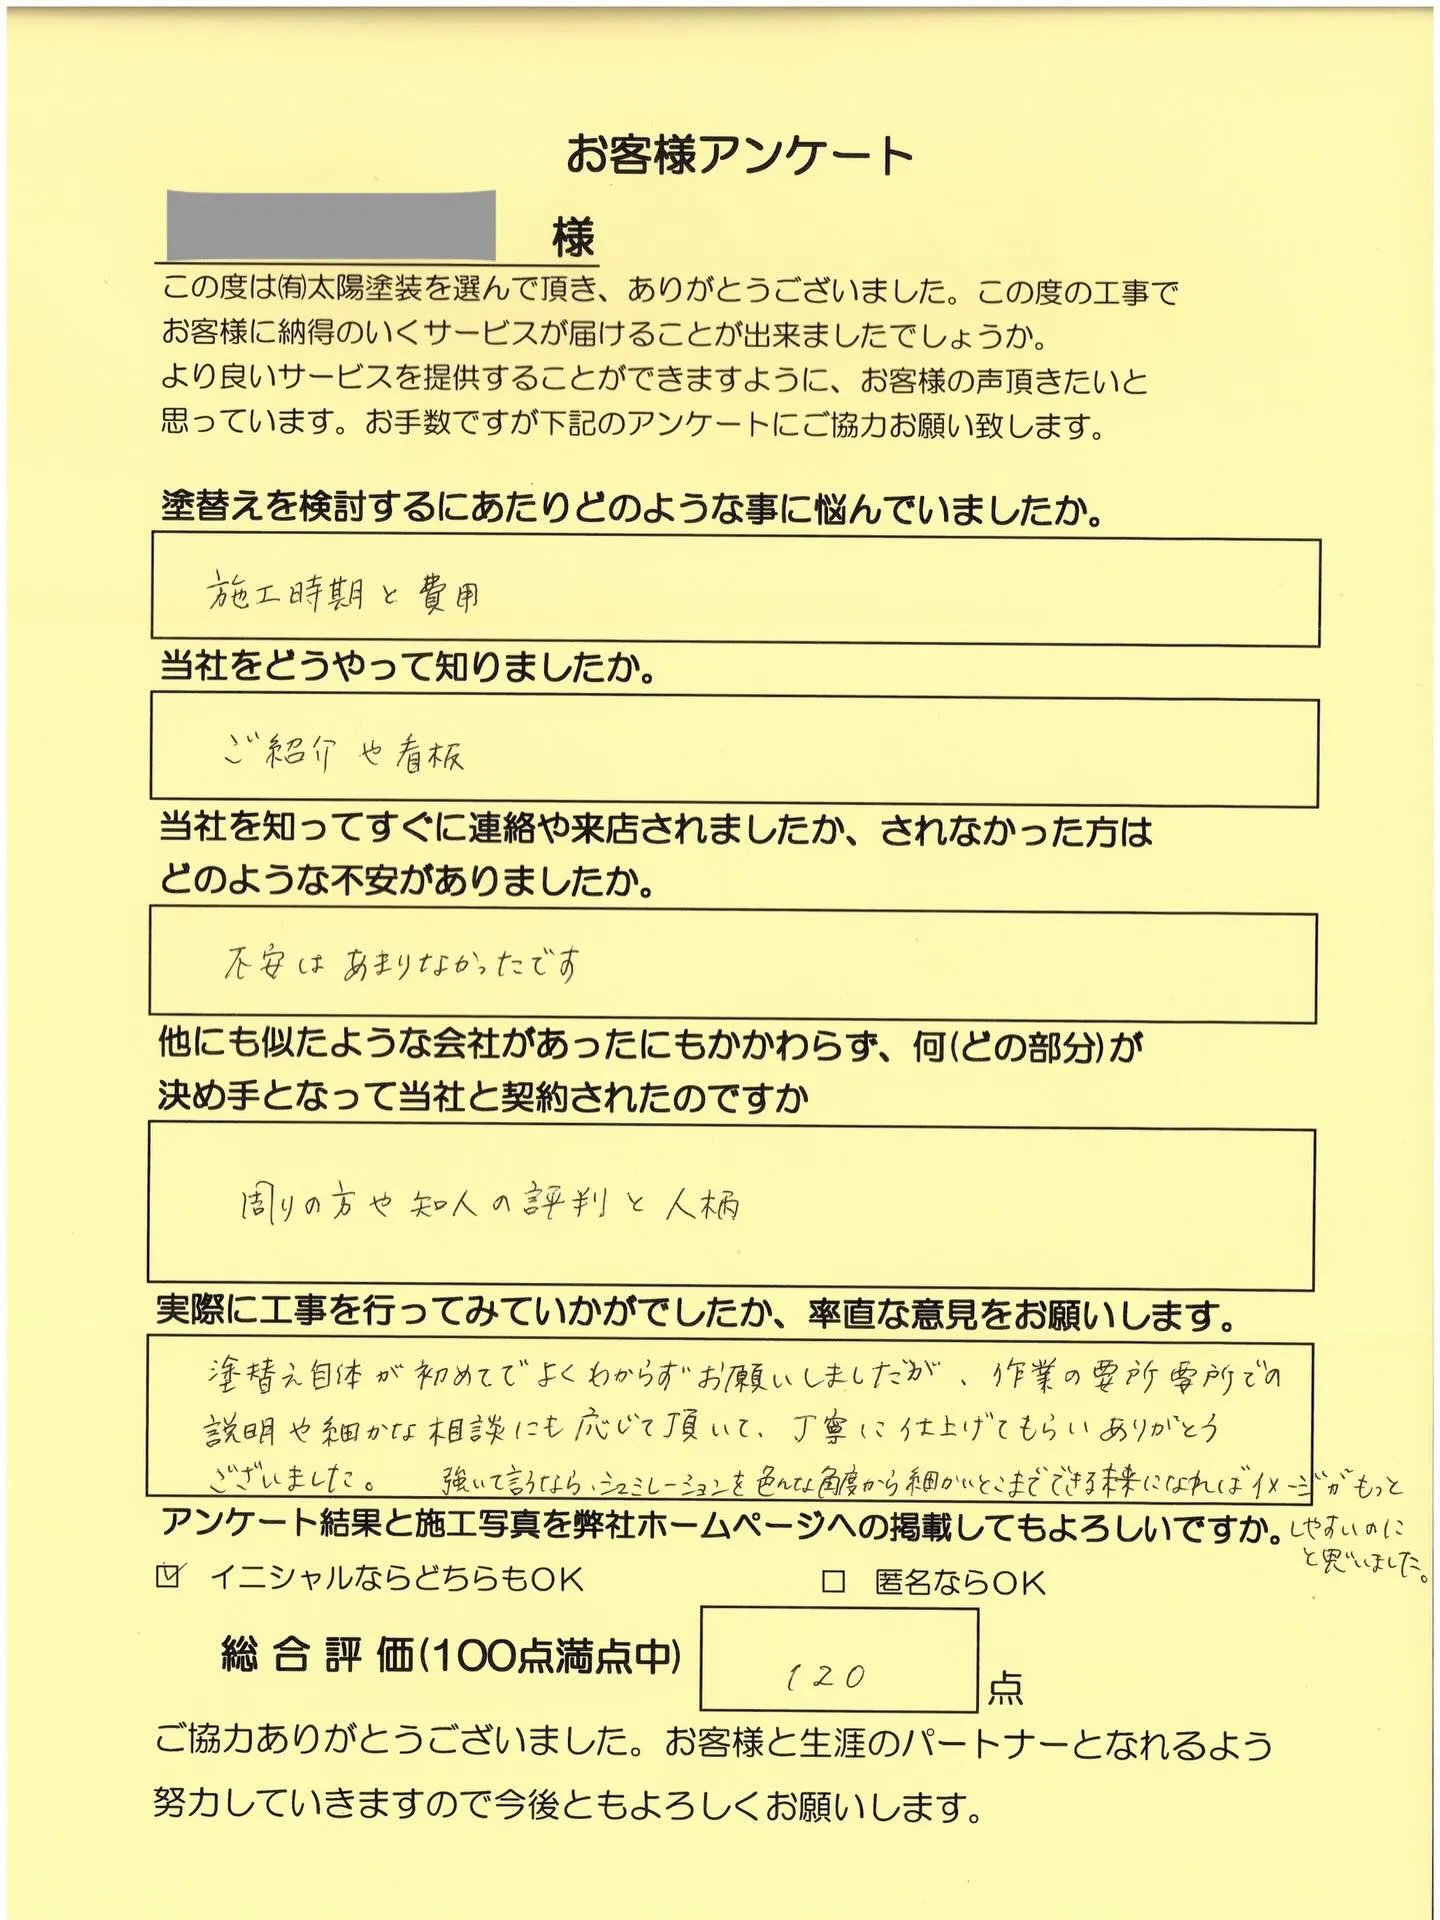 お客様アンケート
様
この度は㈲太陽塗装を選んで頂き、ありがとうございました。この度の工事で
お客様に納得のいくサービスが届けることが出来ましたでしょうか。
より良いサービスを提供することができますように、お客様の声頂きたいと
思っています。お手数ですが下記のアンケートにご協力お願い致します。
塗替えを検討するにあたりどのような事に悩んでいましたか。
施工時期と費用
当社をどうやって知りましたか。
ご紹介や看板
当社を知ってすぐに連絡や来店されましたか、されなかった方は
どのような不安がありましたか。
不安はあまりなかったです
他にも似たような会社があったにもかかわらず、何(どの部分)が
決め手となって当社と契約されたのですか
周りの方や知人の評判と人柄
実際に工事を行ってみていかがでしたか、率直な意見をお願いします。
塗替え自体が初めてでよくわからずお願いしましたが、作業の要所要所での
説明や細かな相談にも応じて頂いて、丁寧に仕上げてもらいありがとう
ございました。 強いて言うなら、シュミレーションを色んな角度から細かいとこまでできる未来になればイメージがもっと
しやすいのに
と思いました。
アンケート結果と施工写真を弊社ホームページへの掲載してもよろしいですか。
☑ イニシャルならどちらもOK □ 匿名ならOK
総合評価(100点満点中) 120 点
ご協力ありがとうございました。お客様と生涯のパートナーとなれるよう
努力していきますので今後ともよろしくお願いします。